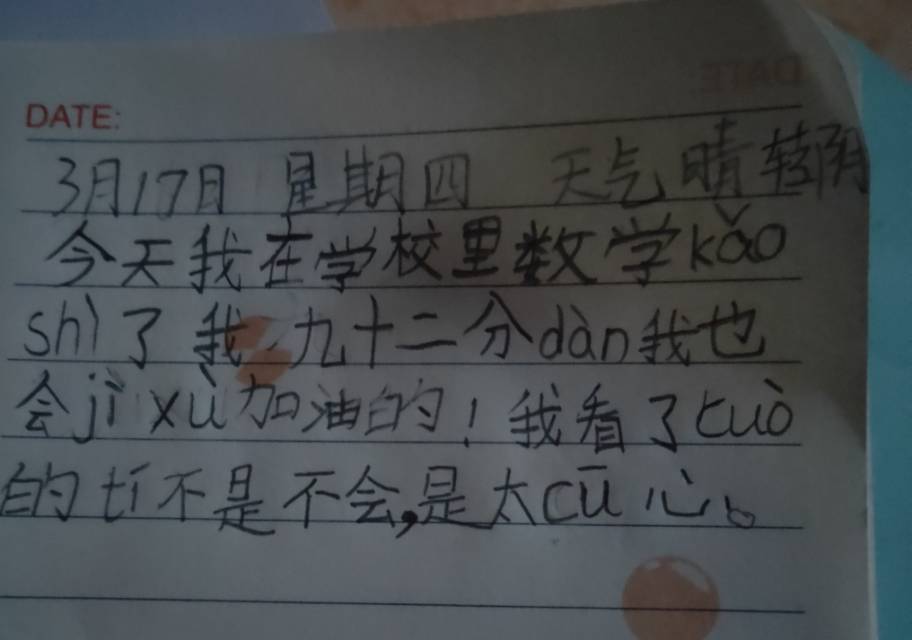 DATE:
3月17日 星期四 天气 晴转阴
今天我在学校里数学kǎo
shì了 我 九十二分dàn我也
会jì xù加油的！我看了cuò
的tí不是不会,是太cū心。